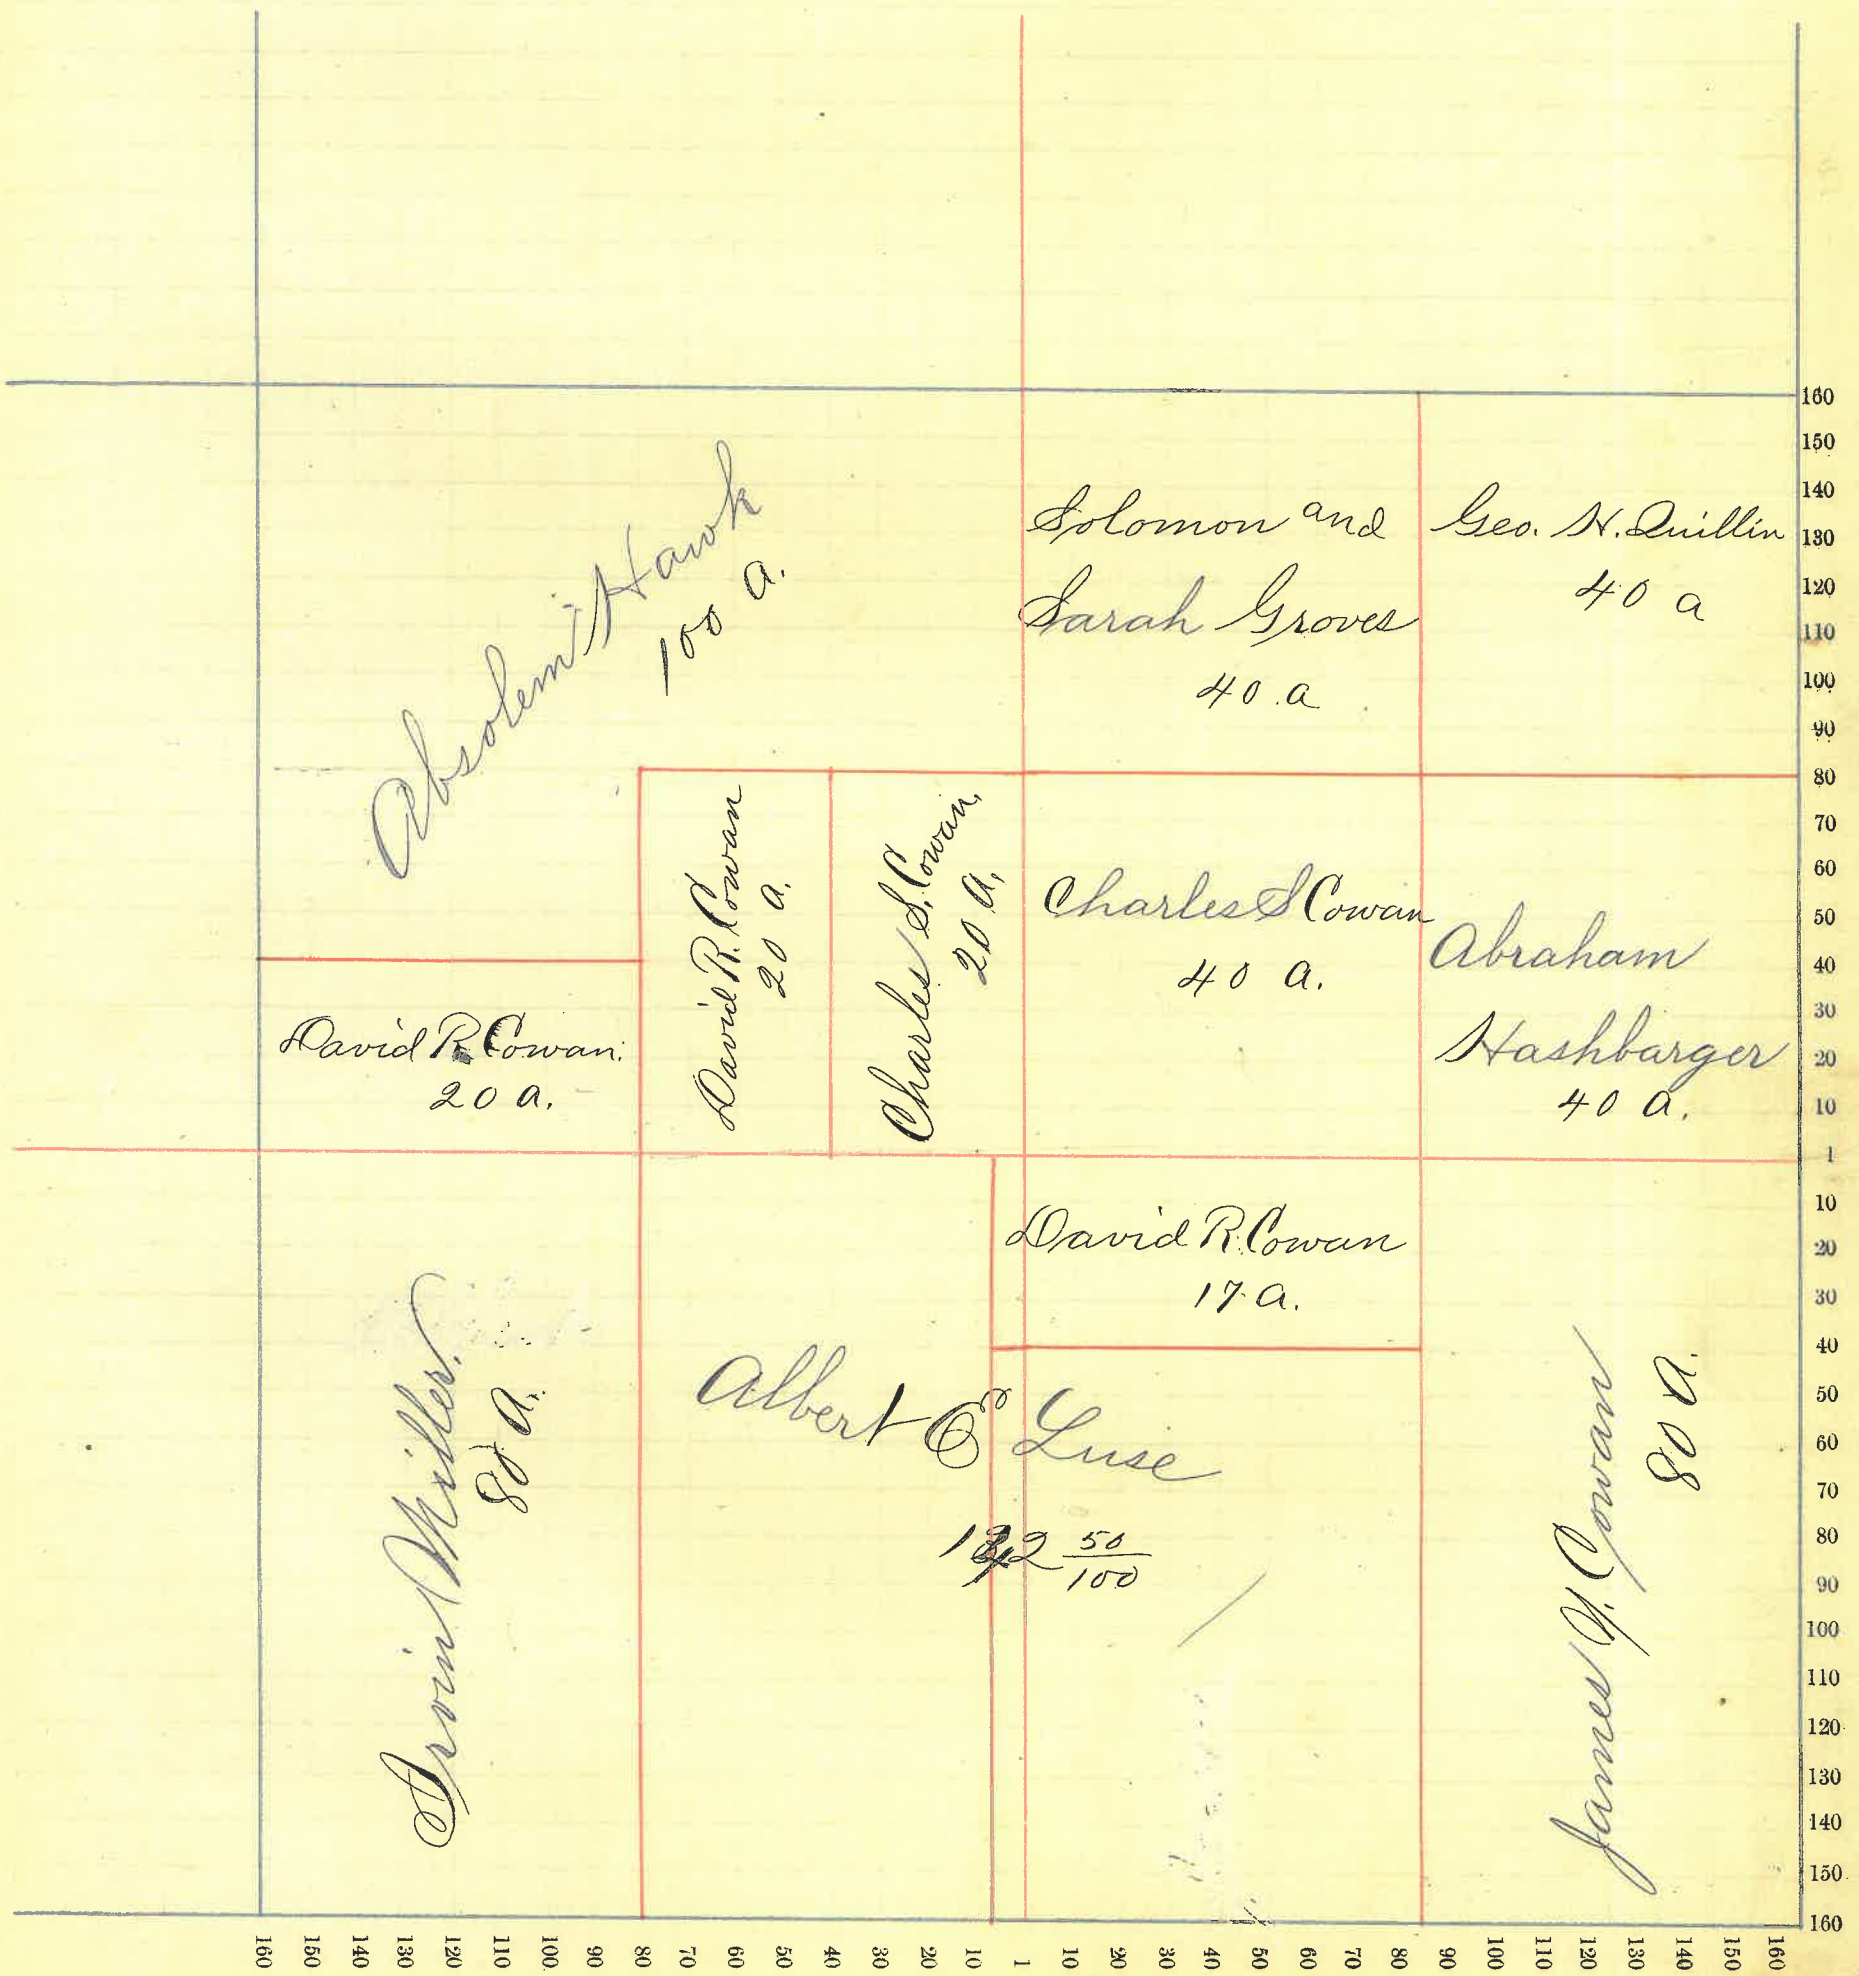 Absolem Hawk
100 a.
Solomon and
Sarah Groves
40 a
Geo. H. Quillin
40 a
David R. Cowan
20 a.
Charles S. Cowan.
20 a.
Charles S Cowan
40 a.
Abraham
Hashbarger
40 a.
David R Cowan.
20 a.
David R. Cowan
17 a.
Irvin Miller.
80 a.
Albert E Luse
50
100
James Y. Cowan
80 a.
160
150
140
130
120
110
100
90
80
70
60
50
40
30
20
10
1
10
20
30
40
50
60
70
80
90
100
110
120
130
140
150
160
160 150 140 130 120 110 100 90 80 70 60 50 40 30 20 10 1 10 20 30 40 50 60 70 80 90 100 110 120 130 140 150 160